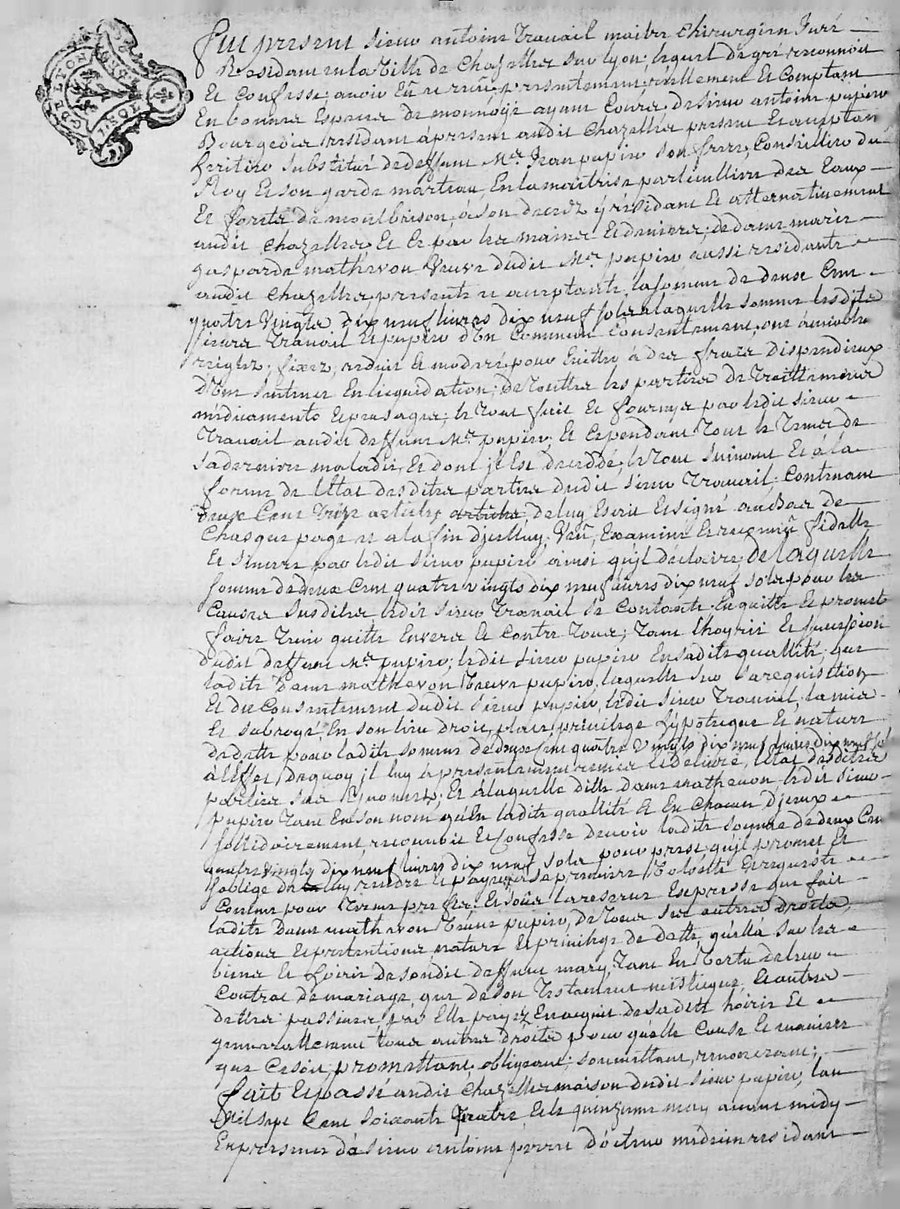 fut present sieur antoine Travail maitre Chirurgien Juré
Residant en la Ville de Chazelles sur Lyon, lequel de gré reconnoit
Et Confesse avoir Eu et reçû presentement reellement Et Comptant
En bonnes Especes de monnoye ayant Cours de sieur antoine pupier
Bourgeois residant àpresent audit Chazelles present Et acceptant
heritier substitué de deffunt Mre Jean pupier son frere, Conseiller du
Roy Et son garde marteau En la maitrise particulliere des Eaux
Et forets de montbrison, à son decez y residant Et alternativement
audit Chazelles, Et Ce par les mains Et deniers, de dame marie
gasparde mathevon Veuve dudit Mre pupier aussi residante
audit Chazelles, presente et acceptante, la somme de deux Cent
quatre Vingts dix neuf livres dix neuf sols à laquelle somme lesdits
sieurs Travail Et pupier d'Un Commun Consentement, ont à
reigler, fixer, reduit Et moderé, pour Eviter à des fraix dispendieux
d'Une En liquidation; de Touttes les parties de Traittements
médicaments Et pensages, le Tout fait Et fourny par ledit sieur
Travail audit deffunt Mre pupier, Et Cependant Tout le Tems de
sa derniere maladie, Et dont jl Est decedé, le Tout suivant Et à la
forme de l'Etat desdites parties dudit sieur Travail, Contenant
deux Cent Treize articles article de luy Escrit Et signé au bas de
Chasque page et a la fin d'jcelluy, Vû, Examiné Et reconnû fidelle
Et sincere par ledit sieur pupier ainsi qu'jl declaire, de laquelle
somme de deux Cent quatre vingts dix neuf livres dix neuf sols pour les
Causes susdites, ledit sieur Travail se Contente En quitte Et promet
faire Tenir quitte Envers Et Contre Tous, Tant l'hoyrie Et succession
dudit deffunt Mre pupier, ledit sieur pupier En sadite quallité que
ladite Dame mathevon Veuve pupier, laquelle sur la requisition
Et du Consentement dudit sieur pupier, ledit sieur Travail, la mis
Et subrogé En son lieu droit, place, privilege hÿpotheque Et nature
de dette pour ladite somme de deux Cent quatre Vingts dix neuf livres dix neuf sols
à l'Effet dequoy jl luy a presentement remis Et delivré, l'Etat desdites
parties sus Enoncé, Et à laquelle ditte Dame mathevon ledit sieur
pupier Tant En son nom qu'En ladite quallité Et En Chacun d'jceux
sollidairement reconnoit Et Confesse devoir ladite somme de deux Cent
quatre vingts dix neuf livres dix neuf sols pour prest qu'jl promet Et
s'oblige de luy rendre et payer à sa premiere Volonté Et requiste
Comme pour Vray prest Et sous la reserve Expresse que fait
ladite Dame mathevon Veuve pupier, de Tous ses autres droits,
actions Et pretentions, nature Et privilege de dette, qu'Elle a sur les
biens Et hoirie de sondit deffunt mary, Tant En Vertu de leur
Contrat de mariage, que de son Testament mistique, Et autres
dettes passives par Elle payez En acquit de sadite hoirie Et
generallement tous autres droits pour quelle Cause Et maniere
que Ce soit, promettant, obligeant, soumettant, renonceant,
fait Et passé audit Chazelles maison dudit sieur pupier, l'an
Mil sept Cent soixante quatre Et le quinzieme may avant midy
En presence de sieur antoine pierre medecin residant